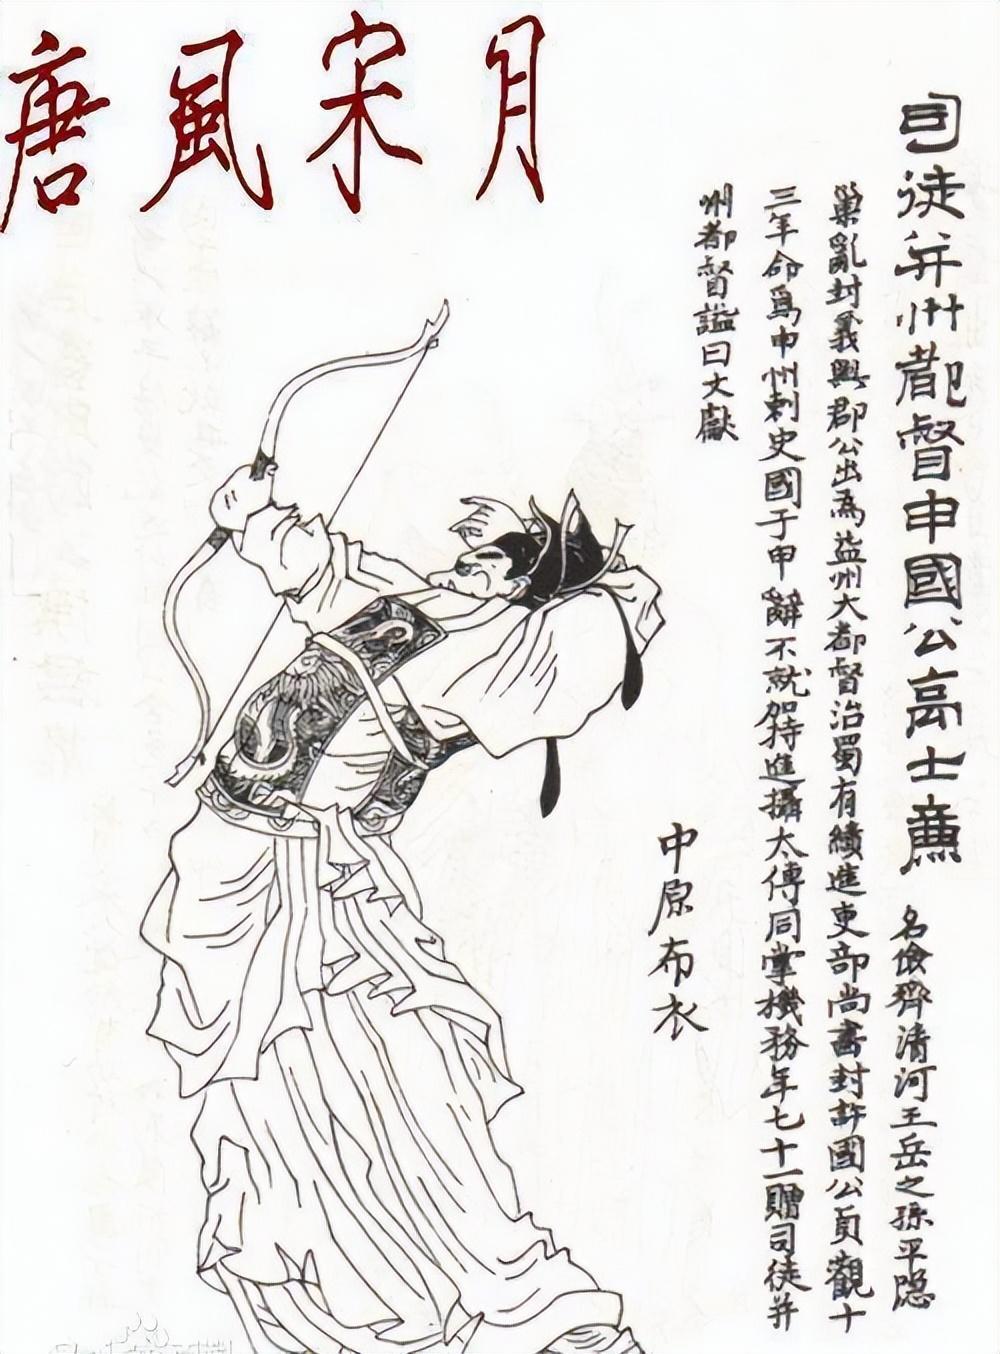 唐風宋月
司徒并州都督申國公高士廉
名儉齊清河王岳之孫平隐
巢亂封義興郡公出為益州大都督治蜀有績進吏部尚書封許國公貞觀十
三年命爲申州刺史國于申辭不就加特進攝太傅同掌機務年七十一贈司徒并
州都督謚曰文獻
中原布衣